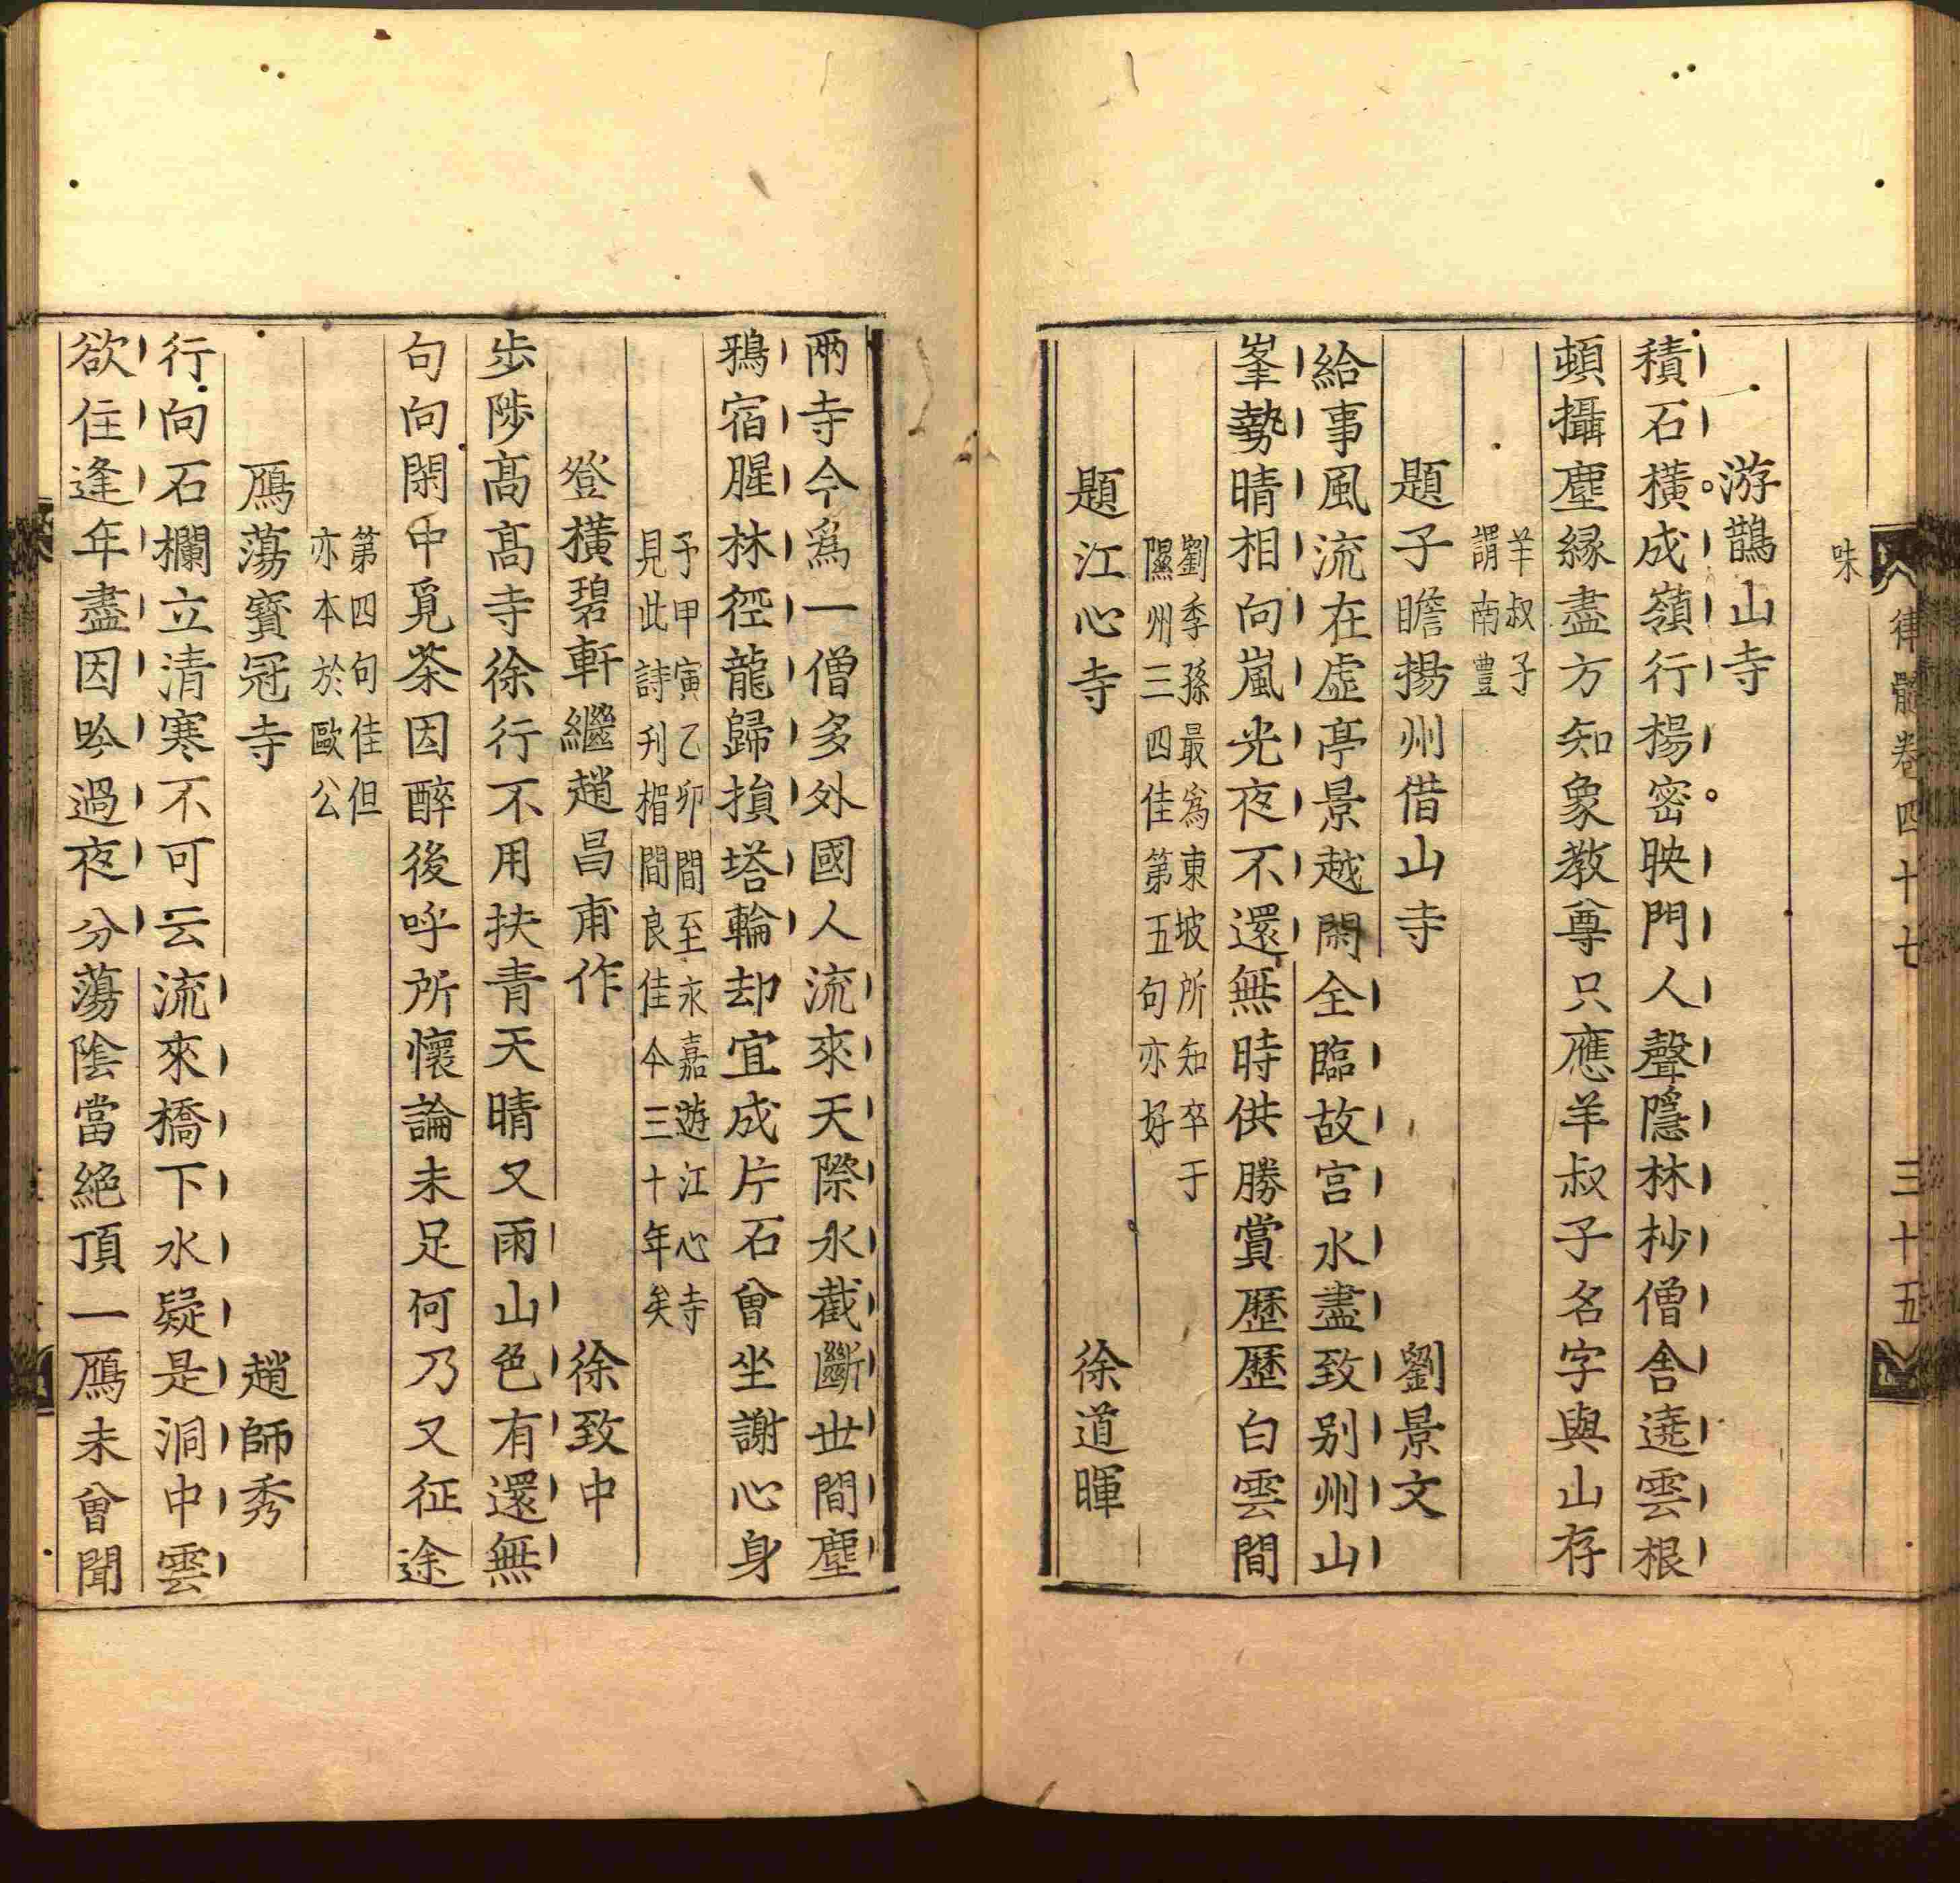 律髓卷四十七
三十五
味
游鵲山寺
積石橫成嶺行楊密映門人聲隱林杪僧舎遶雲根
頓攝塵縁盡方知象教尊只應羊叔子名字與山存
羊叔子
謂南豊
題子瞻揚州借山寺
劉景文
給事風流在虚亭景越閑全臨故宫水盡致别州山
峯勢晴相向嵐光夜不還無時供勝賞歷歷白雲間
劉季孫最爲東坡所知卒于
隰州三四佳第五句亦好
題江心寺
徐道暉
兩寺今爲一僧多外國人流來天際水截斷世間塵
鴉宿腥林徑龍歸損塔輪却宜成片石曾坐謝心身
予甲寅乙卯間至永嘉遊江心寺
見此詩刋楣間良佳今三十年矣
登橫碧軒繼趙昌甫作
徐致中
步陟髙髙寺徐行不用扶青天晴又雨山色有還無
句向閑中覓茶因醉後呼所懷論未足何乃又征途
第四句佳但
亦本於歐公
鴈蕩寳冠寺
趙師秀
行向石欄立清寒不可云流來橋下水疑是洞中雲
欲住逢年盡因吟過夜分蕩隂當絶頂一鴈未曾聞